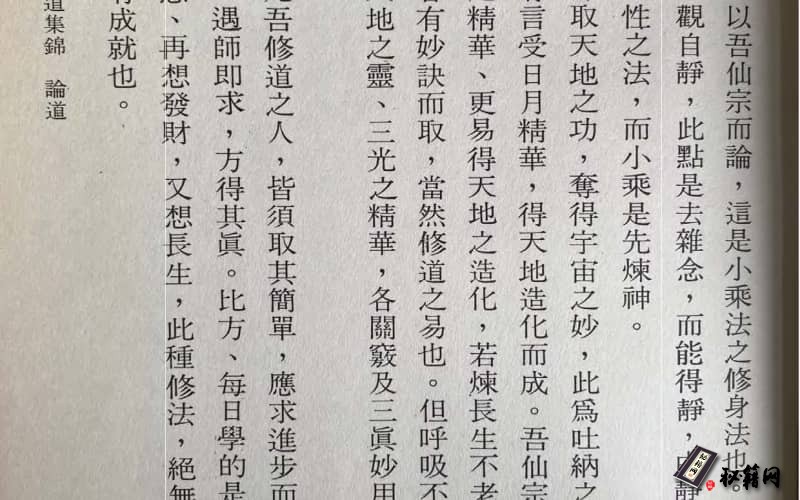 以吾仙宗而論，這是小乘法之修身法也。
觀自靜，此點是去雜念，而能得靜，
性之法，而小乘是先煉神。
取天地之功，奪得宇宙之妙，此爲吐納之
言受日月精華，得天地造化而成。吾仙宗
精華、更易得天地之造化，若煉長生不老
有妙訣而取，當然修道之易也。但呼吸不
地之靈、三光之精華，各關竅及三眞妙用
吾修道之人，皆須取其簡單，應求進步而
遇師即求，方得其眞。比方、每日學的是
、再想發財，又想長生，此種修法，絕無
成就也。
道集錦 論道
秘籍网